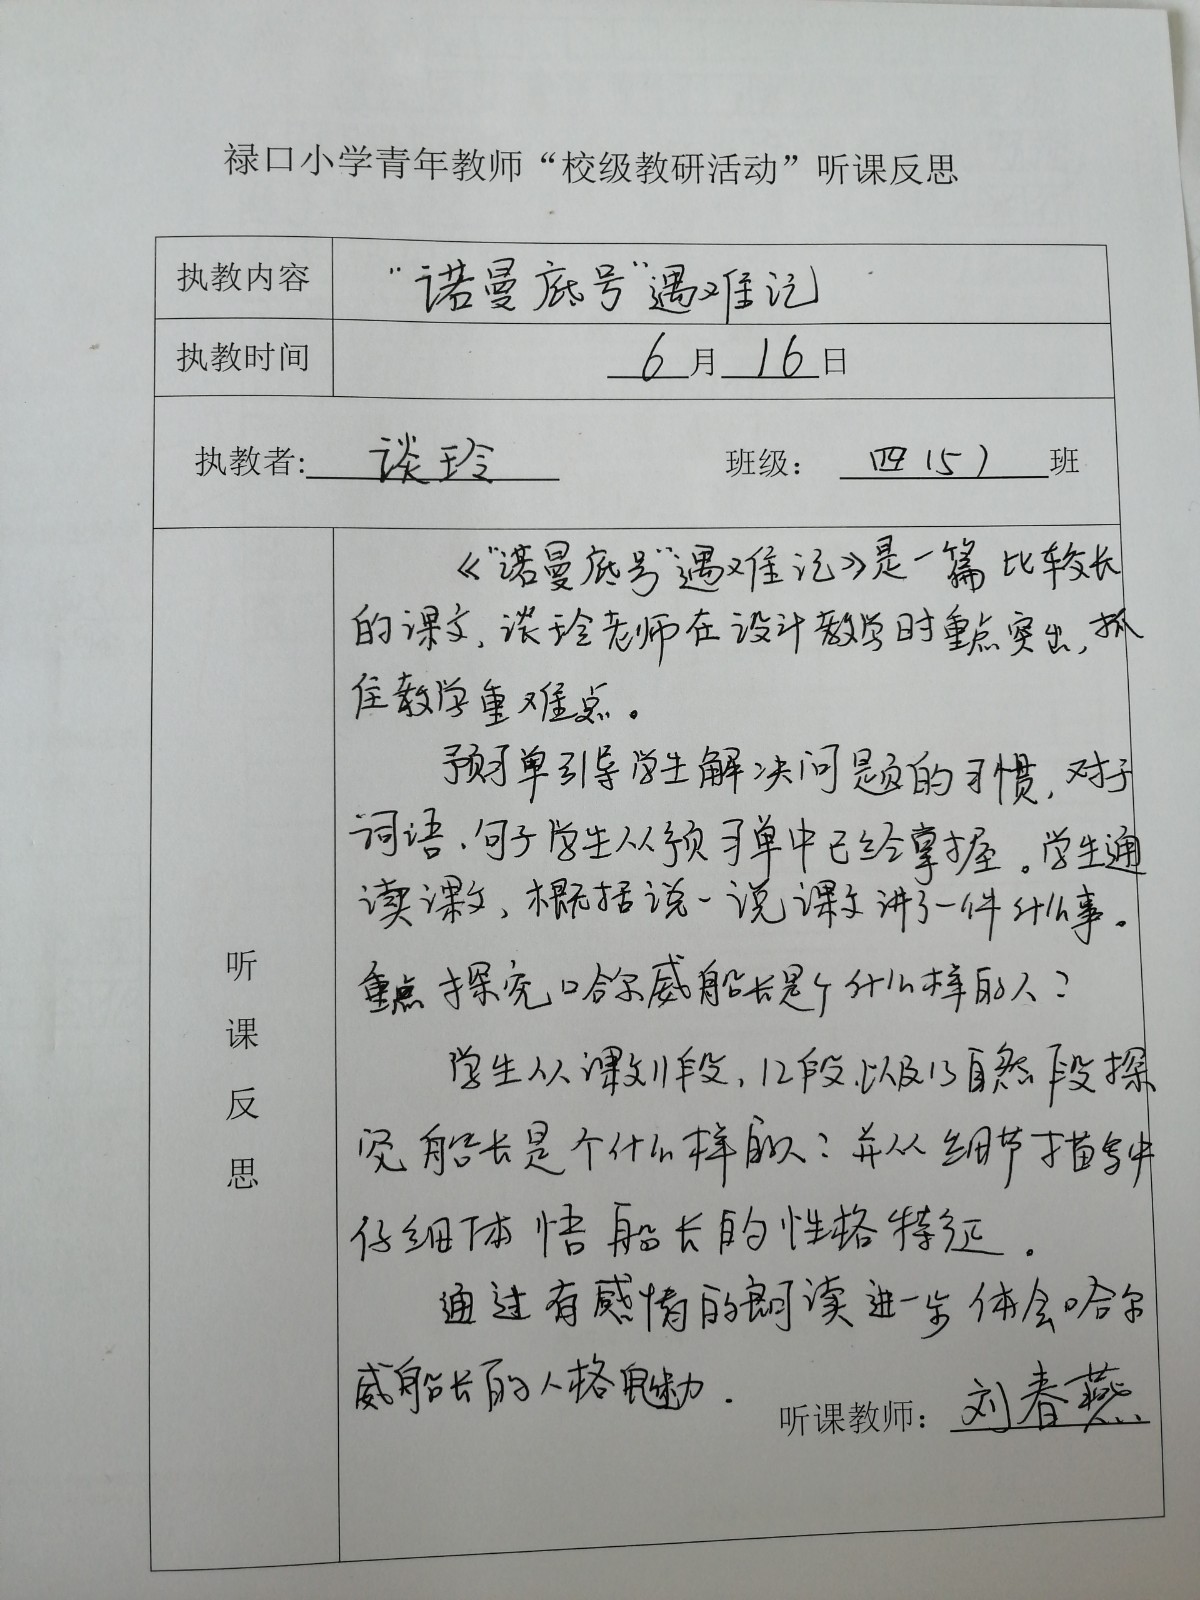 禄口小学青年教师“校级教研活动”听课反思
执教内容 “诺曼底号”遇难记
执教时间 6月16日
执教者: 谈玲 班级: 四(5)班
听课反思
《“诺曼底号”遇难记》是一篇比较长
的课文,谈玲老师在设计教学时重点突出,抓
住教学重难点。
预习单引导学生解决问题的习惯,对于
词语、句子学生从预习单中已经掌握。学生通
读课文,概括说一说课文讲了一件什么事。
重点探究哈尔威船长是个什么样的人?
学生从课文11段、12段、以及13自然段探
究船长是个什么样的人?并从细节描写中
仔细体悟船长的性格特征。
通过有感情的朗读进一步体会哈尔
威船长的人格魅力.
听课教师: 刘春燕